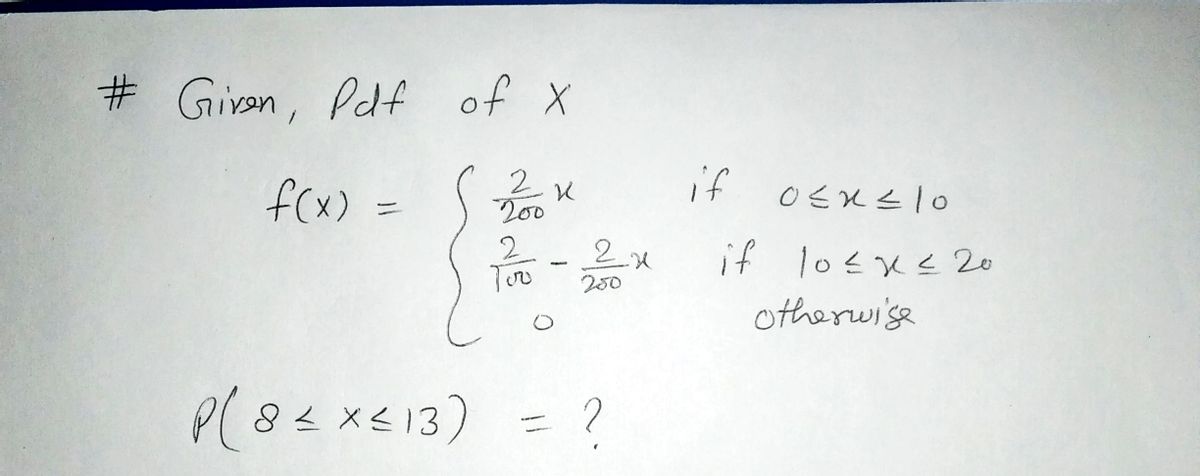 # Given, Pdf of X
f(x) = { 2/200 x if 0 ≤ x ≤ 10
2/100 - 2/200 x if 10 ≤ x ≤ 20
0 otherwise
P( 8 ≤ x ≤ 13) = ?